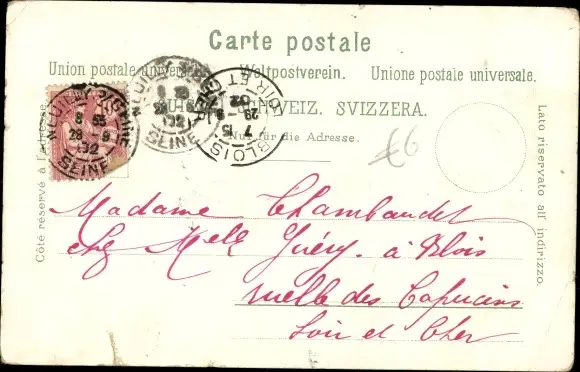 Carte postale
Union postale universelle. Weltpostverein. Unione postale universale.
SCHWEIZ. SVIZZERA.
Nur für die Adresse.
Côté réservé à l'adresse.
Lato riservato all' indirizzo.
NEUILLY-S-SEINE
8 35
28 9
02
SEINE
8 35
28 9
02
BLOIS
LOIR ET CHER
7 15
29 9
02
£6
Madame Chambaudet
chez Melle Guéry. à Blois
ruelle des Capucins
Loir et Cher